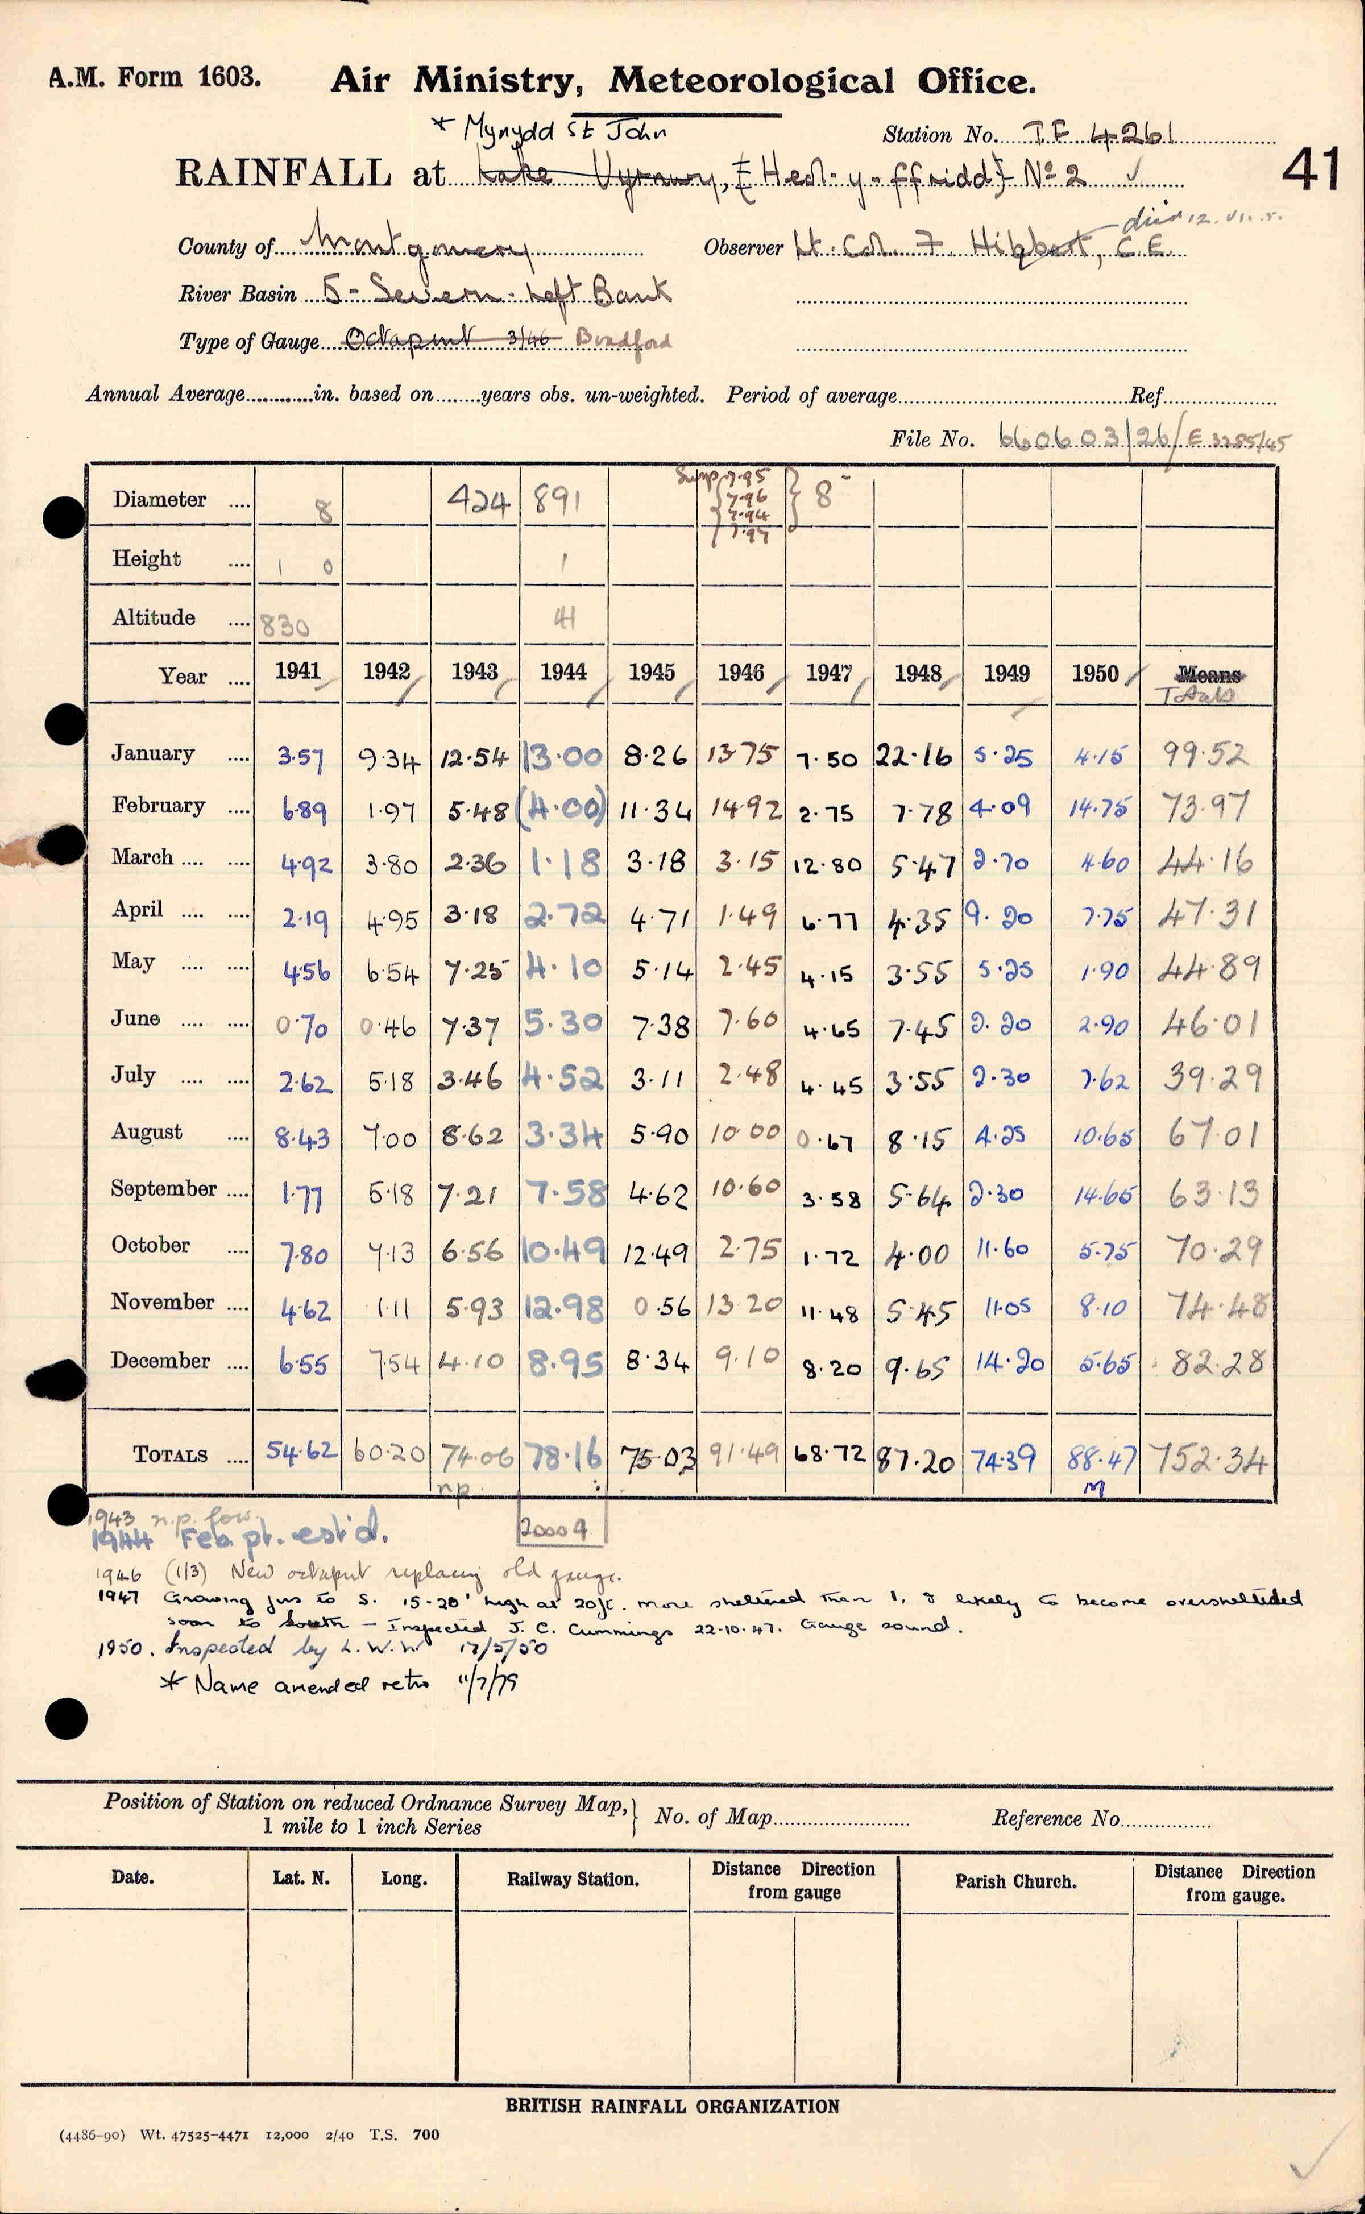 A.M. Form 1603. Air Ministry, Meteorological Office.
* Mynydd St John
Station No. TF 4261
RAINFALL at Lake Vyrnwy, {Heol-y-ffridd} No 2 ✓
41
County of Montgomery Observer Lt. Col. F. Hibbert, C.E.
River Basin 5 - Severn - Left Bank
Type of Gauge Octapint 3/46 Bradford
Annual Average in. based on years obs. un-weighted. Period of average Ref.
File No. 660603/26/E 3255/45
Diameter 8 424 891 7.95 7.96 7.94 7.97 8
Height 1 0 1
Altitude 830 41
Year 1941 1942 1943 1944 1945 1946 1947 1948 1949 1950 Means
Totals
January 3.57 9.34 12.54 13.00 8.26 13.75 7.50 22.16 5.25 4.15 99.52
February 6.89 1.97 5.48 (4.00) 11.34 14.92 2.75 7.78 4.09 14.75 73.97
March 4.92 3.80 2.36 1.18 3.18 3.15 12.80 5.47 2.70 4.60 44.16
April 2.19 4.95 3.18 2.72 4.71 1.49 6.77 4.35 9.20 7.75 47.31
May 4.56 6.54 7.25 4.10 5.14 2.45 4.15 3.55 5.25 1.90 44.89
June 0.70 0.46 7.37 5.30 7.38 7.60 4.65 7.45 2.20 2.90 46.01
July 2.62 5.18 3.46 4.52 3.11 2.48 4.45 3.55 2.30 7.62 39.29
August 8.43 7.00 8.62 3.34 5.90 10.00 0.67 8.15 4.25 10.65 67.01
September 1.77 5.18 7.21 7.58 4.62 10.60 3.58 5.64 2.30 14.65 63.13
October 7.80 7.13 6.56 10.49 12.49 2.75 1.72 4.00 11.60 5.75 70.29
November 4.62 1.11 5.93 12.98 0.56 13.20 11.48 5.45 11.05 8.10 74.48
December 6.55 7.54 4.10 8.95 8.34 9.10 8.20 9.65 14.20 5.65 82.28
TOTALS 54.62 60.20 74.06 78.16 75.03 91.49 68.72 87.20 74.39 88.47 752.34
n.p. M
1943 n.p. for
1944 Feb pt. est'd. 20009
1946 (1/3) New octapint replacing old gauge.
1947 Growing firs to S. 15-20' high at 20ft. more sheltered than 1, & likely to become oversheltered
soon to South - Inspected J. C. Cummings 22.10.47. Gauge sound.
1950. Inspected by L.W.W. 17/5/50
* Name amended retro 11/7/79
Position of Station on reduced Ordnance Survey Map,} No. of Map Reference No.
1 mile to 1 inch Series
Date. Lat. N. Long. Railway Station. Distance Direction from gauge Parish Church. Distance Direction from gauge.
BRITISH RAINFALL ORGANIZATION
(4486-90) Wt. 47525-4471 12,000 2/40 T.S. 700